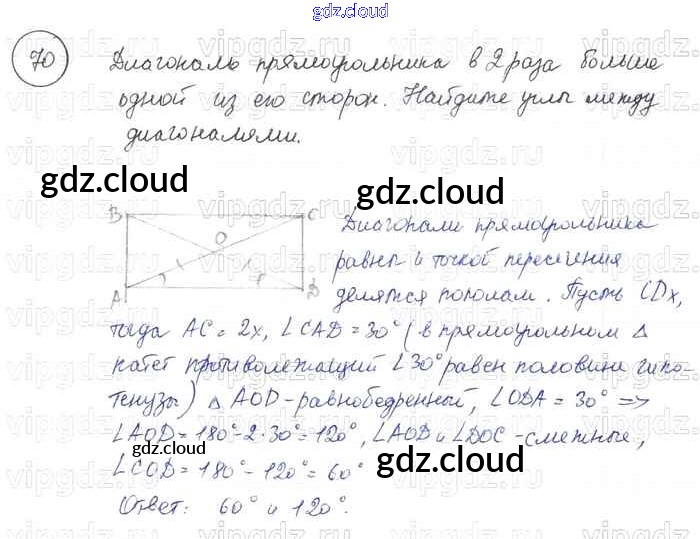 gdz.cloud
70 Диагональ прямоугольника в 2 раза больше
одной из его сторон. Найдите углы между
диагоналями.
gdz.cloud
gdz.cloud
B C
O
A D
Диагонали прямоугольника
равны и точкой пересечения
делятся пополам. Пусть CDx,
тогда AC = 2x, ∠CAD = 30° (в прямоугольном Δ
катет противолежащий ∠30° равен половине гипо-
тенузы) Δ AOD - равнобедренный, ∠ODA = 30° =>
∠AOD = 180° - 2·30° = 120°, ∠AOD и ∠DOC - смежные,
gdz.cloud
∠COD = 180° - 120° = 60°
Ответ: 60° и 120°.
gdz.cloud